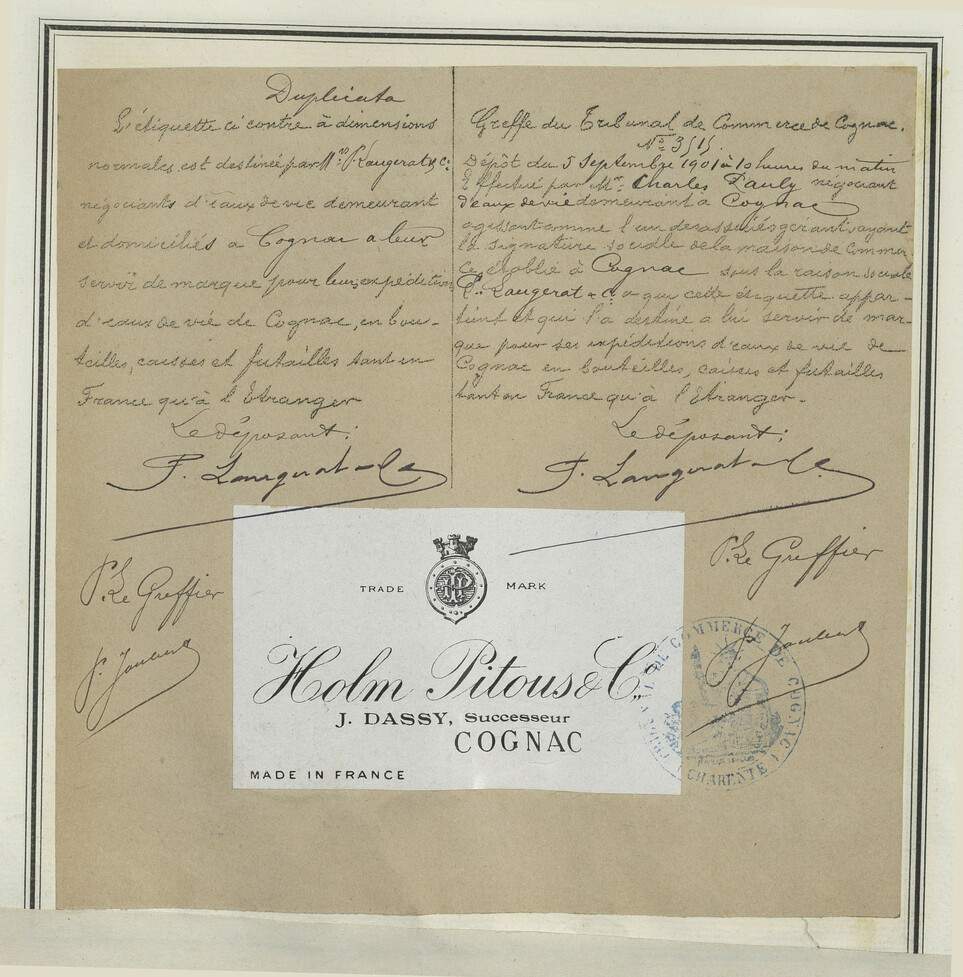 Duplicata
L'étiquette ci contre à dimensions
normales est destinée par Mrs P. Laugerat & Cie
négociants d'eaux de vie demeurant
et domiciliés a Cognac a leur
servir de marque pour leurs expéditions
d'eaux de vie de Cognac, en bou-
teilles, caisses et futailles tant en
France qu'à l'Etranger
Le déposant:
P. Laugerat & Cie
P. Le Greffier
Greffe du Tribunal de Commerce de Cognac.
Dépôt du 5 Septembre 1901 à 10 heures du matin
Effectué par Mr. Charles Pauly négociant
d'eaux de vie demeurant à Cognac
agissant comme l'un des associés gérant, ayant
la signature sociale de la maison de Commer-
ce établie à Cognac sous la raison sociale
P. Laugerat & Cie a qui cette étiquette appar-
tient et qui l'a destine a lui servir de mar-
que pour ses expéditions d'eaux de vie de
Cognac en bouteilles, caisses et futailles
tant en France qu'à l'Etranger.
Le déposant:
P. Laugerat & Cie
P. Le Greffier
TRADE MARK
Holm Pitous & Co.
J. DASSY, Successeur
COGNAC
MADE IN FRANCE
DE COMMERCE DE COGNAC
(CHARENTE)